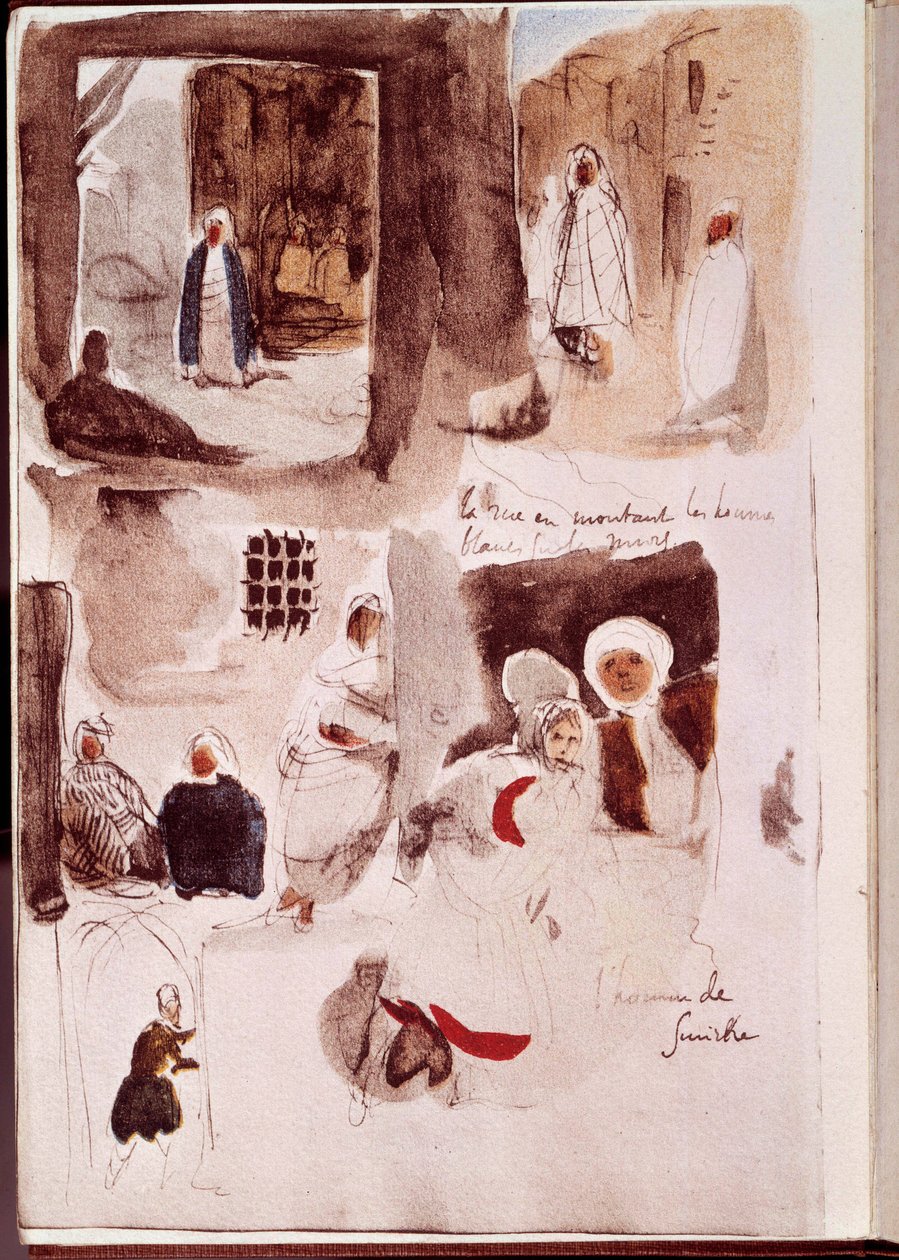 la rue en montant les hommes
blancs sur les murs.
l'homme de